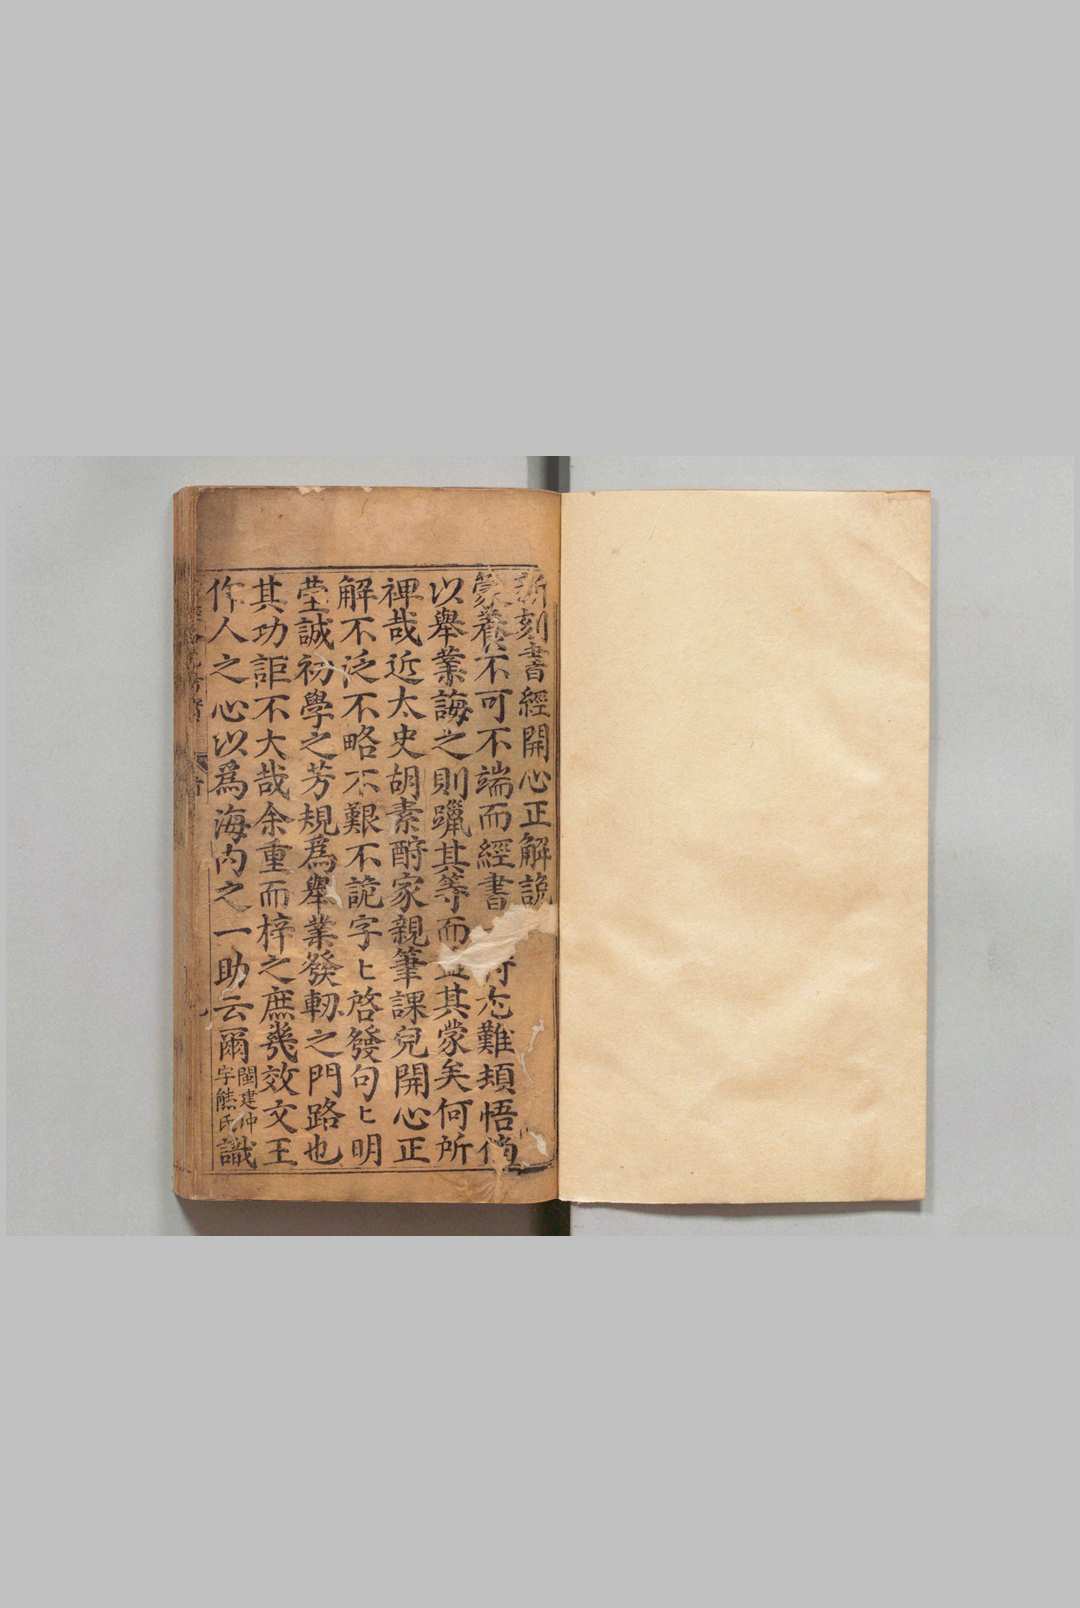 新刻書經開心正解說
蒙養不可不端而經書尤難頓悟倘
以舉業誨之則躐其等而益其蒙矣何所
裨哉近太史胡素酧家親筆課兒開心正
解不泛不略不艱不詭字匕啓發句匕明
瑩誠初學之芳規爲舉業發軔之門路也
其功詎不大哉余重而梓之庶幾效文王
作人之心以爲海內之一助云爾
閩建冲
字熊氏
識